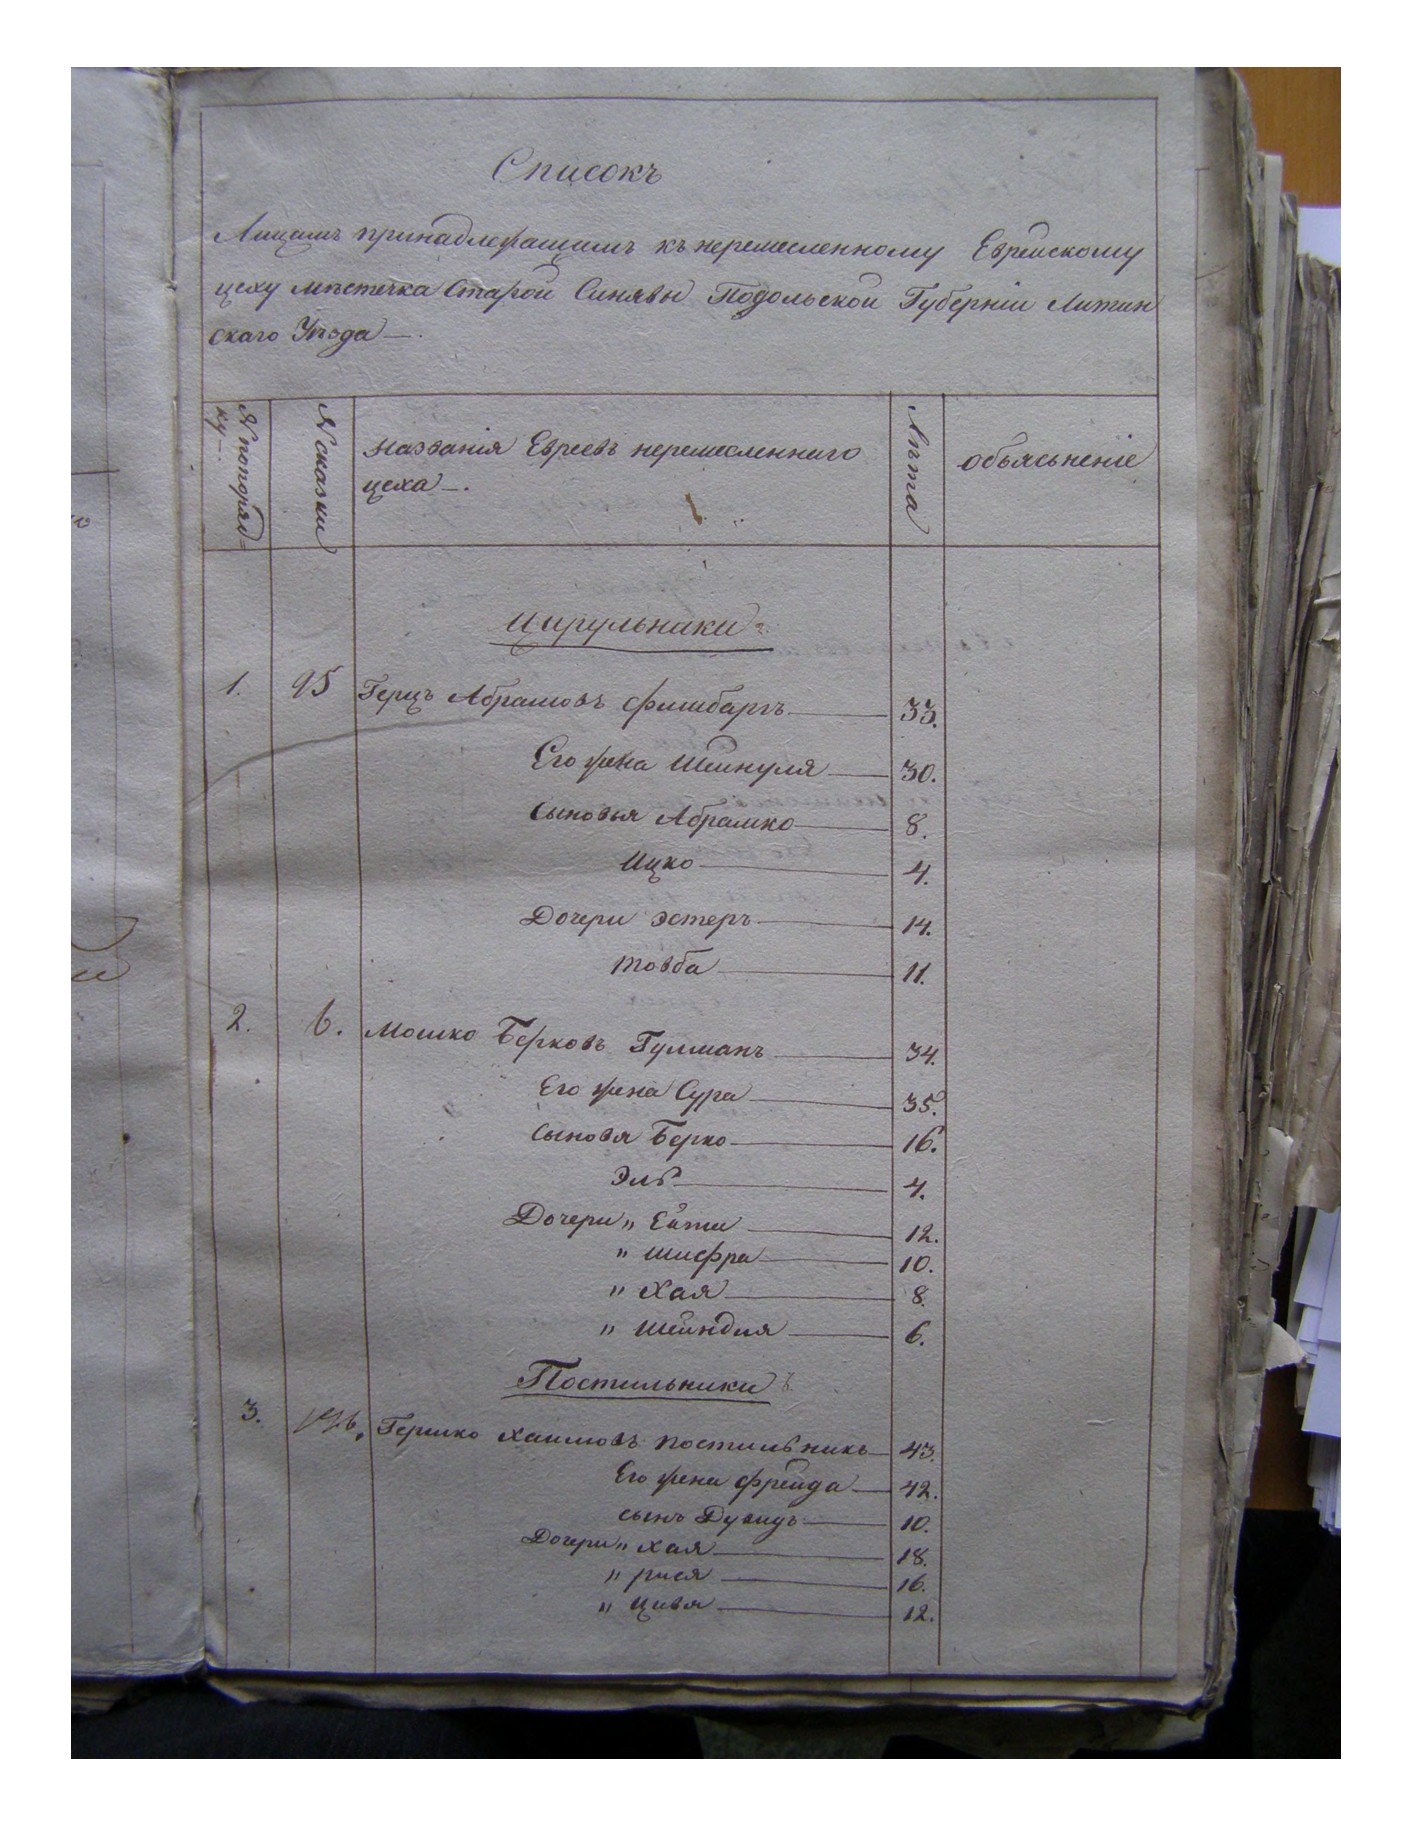 Списокъ
Лицамъ принадлежащимъ къ неремесленному Еврейскому
цеху мѣстечка Старой Синявы Подольской Губерніи Литин
скаго Уѣзда —.
№ попоряд=
ку —.
№ сказки
Названія Евреевъ неремесленнаго
цеха —.
Лѣта
объясьненіе
Цирульники
1. 95 Герцъ Абрамовъ Фишбаргъ 33.
Его жена Шейнуля 30.
Сыновья Абрамко 8.
Ицко 4.
Дочери Эстеръ 14.
Товба 11.
2. 6. Мошко Берковъ Гулманъ 34.
Его жена Сура 35.
Сыновя Берко 16.
Эль 4.
Дочери „ Ейти 12.
„ Шифра 10.
„ Хая 8.
„ Шейндля 6.
Постильники
3. Гершко Хаимовъ Постильникъ 43.
Его жена Фрейда 42.
сынъ Дувидъ 10.
Дочери „ Хая 18.
„ рися 16.
„ Цивя 12.